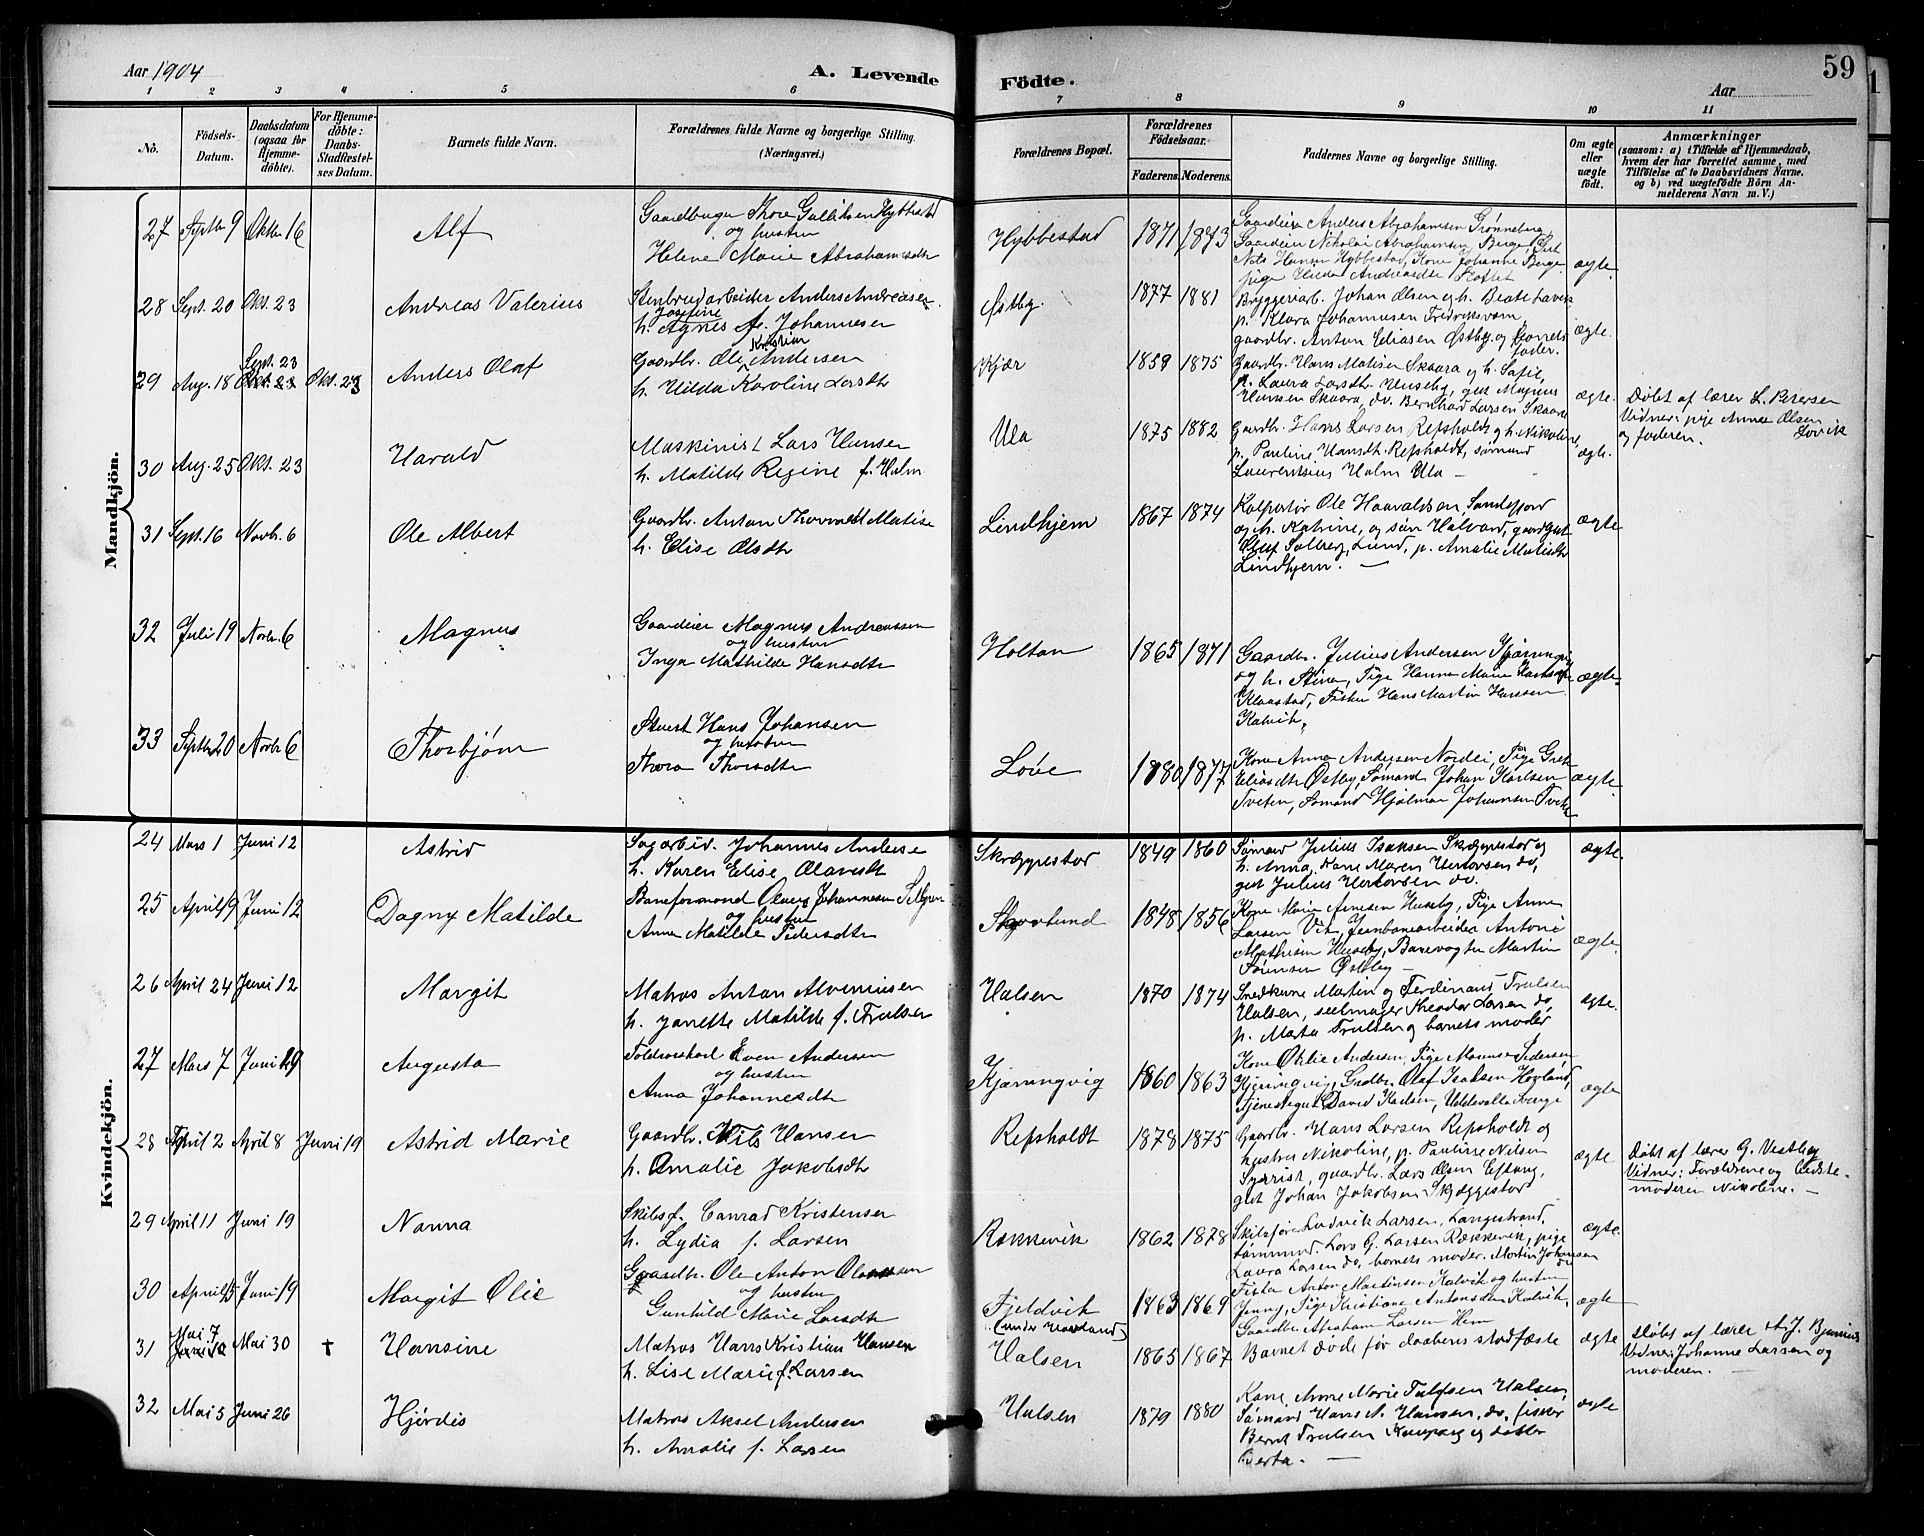 Aar 1904
A. Levende
Födte.
59
Aar
1 2 3 4 5 6 7 8 9 10 11
No.
Födsels-
Datum.
Daabsdatum
(ogsaa for
Hjemme-
döbte).
For Hjemme-
döbte:
Daabs-
Stadfæstel-
ses Datum.
Barnets fulde Navn.
Forældrenes fulde Navne og borgerlige Stilling.
(Næringsvei.)
Forældrenes Bopæl.
Forældrenes
Födselsaar.
Faderens. Moderens.
Faddernes Navne og borgerlige Stilling.
Om ægte
eller
uægte
født.
Anmærkninger
(saasom: a) i Tilfælde af Hjemmedaab,
hvem der har forrettet samme, med
Tilföielse af to Daabsvidners Navne.
og b) ved uægtefödte Börn An-
melderens Navn m. V.)
Mandkjön.
27 Septbr 9 Oktbr 16 Alf
Gaardbruger Thore Gulliksen Hybbestad
og hustru
Helene Marie Abrahamsdtr
Hybbestad 1871 1873
Gaardeier Anders Abrahamsen Grønneberg,
Gaardeier Nikolai Abrahamsen Berge, Gut
Nils Hansen Hybbestad, Kone Johanne Berge
pige Hilda Andreasdtr
ægte.
28 Sept. 20 Okt. 23 Andreas Valerius
Stenbrudarbeider Anders Andreasen
Josefine
h. Agnes f. Johannesen
Østby. 1877 1881
Bryggeriarb. Johan Olsen og h. Beate Lavik
p. Klara Johannesen Fredriksværn
gaardbr. Anton Eliasen Østby og barnets
fader.
ægte.
29 Aug. 18 Sept. 23 Okt. 23 Okt. 23 Anders Olaf
Kristian
Gaardbr. Ole Andersen
h. Hilda Karoline Larsdtr
Kjær 1859 1875
Gaardbr. Hans Matisen Skaara og h. Sofie,
p. Laura Larsdtr. Huseby, gut Magnus
Hansen Skaara, do. Bernhard Larsen Skaara
ægte.
Døbt af lærer L. Petersen
Vidner: pige Anna Olsen
og faderen. Lovik
30 Aug. 25 Okt. 23 Harald
Maskinist Lars Hansen
h. Matilde Regine f. Holm
Ula 1875 1882
Gaardbr. Hans Larsen Refsholdt og h. Nikoline,
p. Pauline Hansdtr. Refsholdt, sømand
Laurentsius Holm Ula —
ægte.
31 Sept. 16 Novb. 6 Ole Albert
Gaardbr. Anton Thorvald Matise
h. Elise Olsdtr
Lindhjem 1867 1874
Kolportør Ole Haavaldsen, Sandefjord
og h. Katrine, og søn Halvard, gaardgut
Oluf Solberg, Lund, p. Amalie Matisdtr
Lindhjem. —
ægte
32 Juli 19 Novbr. 6 Magnus
Gaardeier Magnus Andreassen
og hustru
Inga Mathilde Hansdtr
Holtan 1865 1871
Gaardbr. Julius Andersen Kjærringvig
og h. Stina, Pige Hanna Marie
Klaastad, Fisker Hans Martin Hansen
Kalvik.
ægte.
33 Septbr 20 Novbr 6 Thorbjørn
Stuert Hans Johansen
og hustru
Thora Thorsdtr
Løve 1880 1877
Kone Anna Andersen Nordei, Pige Grete
Eliasdtr Østby, Sømand Johan Karlsen
Tveten, Sømand Hjalmar Johannsen Tveten
ægte.
Kvindekjön.
24 Mars 1 Juni 12 Astrid
Sagarbid. Johannes Anderse
h. Karen Elise Olavsdt
Skræppestad 1849 1860
Sømand Julius Isaksen Skjæppestad og
h. Anna, Kone Maren Hertovsen do,
gut Julius Hertovsen do.
ægte.
25 April 19 Juni 12 Dagny Matilde
Baneformand Olaus Johannesen Sillgren
og hustru
Anna Matilde Pedersdtr
Skovlund 1848 1856
Kone Marie Arnesen Huseby, Pige Anna
Larsen Vik, Jernbanearbeider Antoni
Mathisen Huseby, Banevogter Martin
Sörensen Østby —
ægte.
26 April 24 Juni 12 Margit
Matros Anton Alvernusen
h. Janette Matilde f. Trulsen
Halsen 1870 1874
Snedkerne Martin og Ferdinand Trulsen
Halsen, seilmager Theodor Larsen do,
p. Marta Trulsen og barnets moder
ægte.
27 Mars 7 Juni 19 Augusta
Toldrorskarl Even Andersen
og hustru
Anna Johannesdtr
Kjæringvig 1860 1863
Kone Otilie Andersen, Pige Pedersen
Kjæringvig, Gaardbr. Olaf Isaksen Hovland,
Tjenestegut David Karlsen, Uddevalla Sverige
ægte
28 April 2 April 8 Juni 19 Astrid Marie
Gaardbr. Nils Hansen
h. Amalie Jakobsdtr
Refsholdt 1878 1875
Gaardbr. Hans Larsen Refsholdt og
hustru Nikoline, p. Pauline Nilsen
Syrrist, gaardbr. Lars Olsen Eftang,
gut Johan Jakobsen Skjæggestad
ægte
Døbt af lærer G. Vestby
Vidner: Forældrene og Bedste-
moderen Nikoline. —
29 April 11 Juni 19 Nanna
Skibsf. Conrad Kristensen
h. Lydia f. Larsen
Rækkevik 1862 1878
Skibsfører Ludvik Larsen, Langestrand,
sømmand. Lars G. Larsen Rækkevik, pige
Laura Larsen do, barnets moder. Martin Johansen
do
ægte.
30 April 15 Juni 19 Margit Olie
Gaardbr. Ole Anton Olsen
og hustru
Gunhild Marie Larsdtr
Fjeldvik
(under Hovland) 1863 1869
Fisker Anton Martinsen Kalvik og hustru
Jenny, Pige Kristiane Antonsdtr Kalvik,
Gaardbr Abraham Larsen Hem
ægte
31 Mai 7 Mai 30 † Hansine
Matros Hans Kristian Hansen
h. Lise Marie f. Larsen
Halsen 1865 1867
Barnet døde før daabens stadfæste
ægte
Døbt af lærer A. J. Bjernius
Vidner: Johanne Larsen og
moderen. —
32 Mai 5 Juni 26 Hjørdis
Matros Aksel Andersen
h. Amalie f. Larsen
Halsen 1879 1880
Kone Anne Marie Tollefsen Halsen,
Sømand Hans A. Hansen, do, fisker
Bernt Trulsen Kaupang og datter
Berta. —
ægte